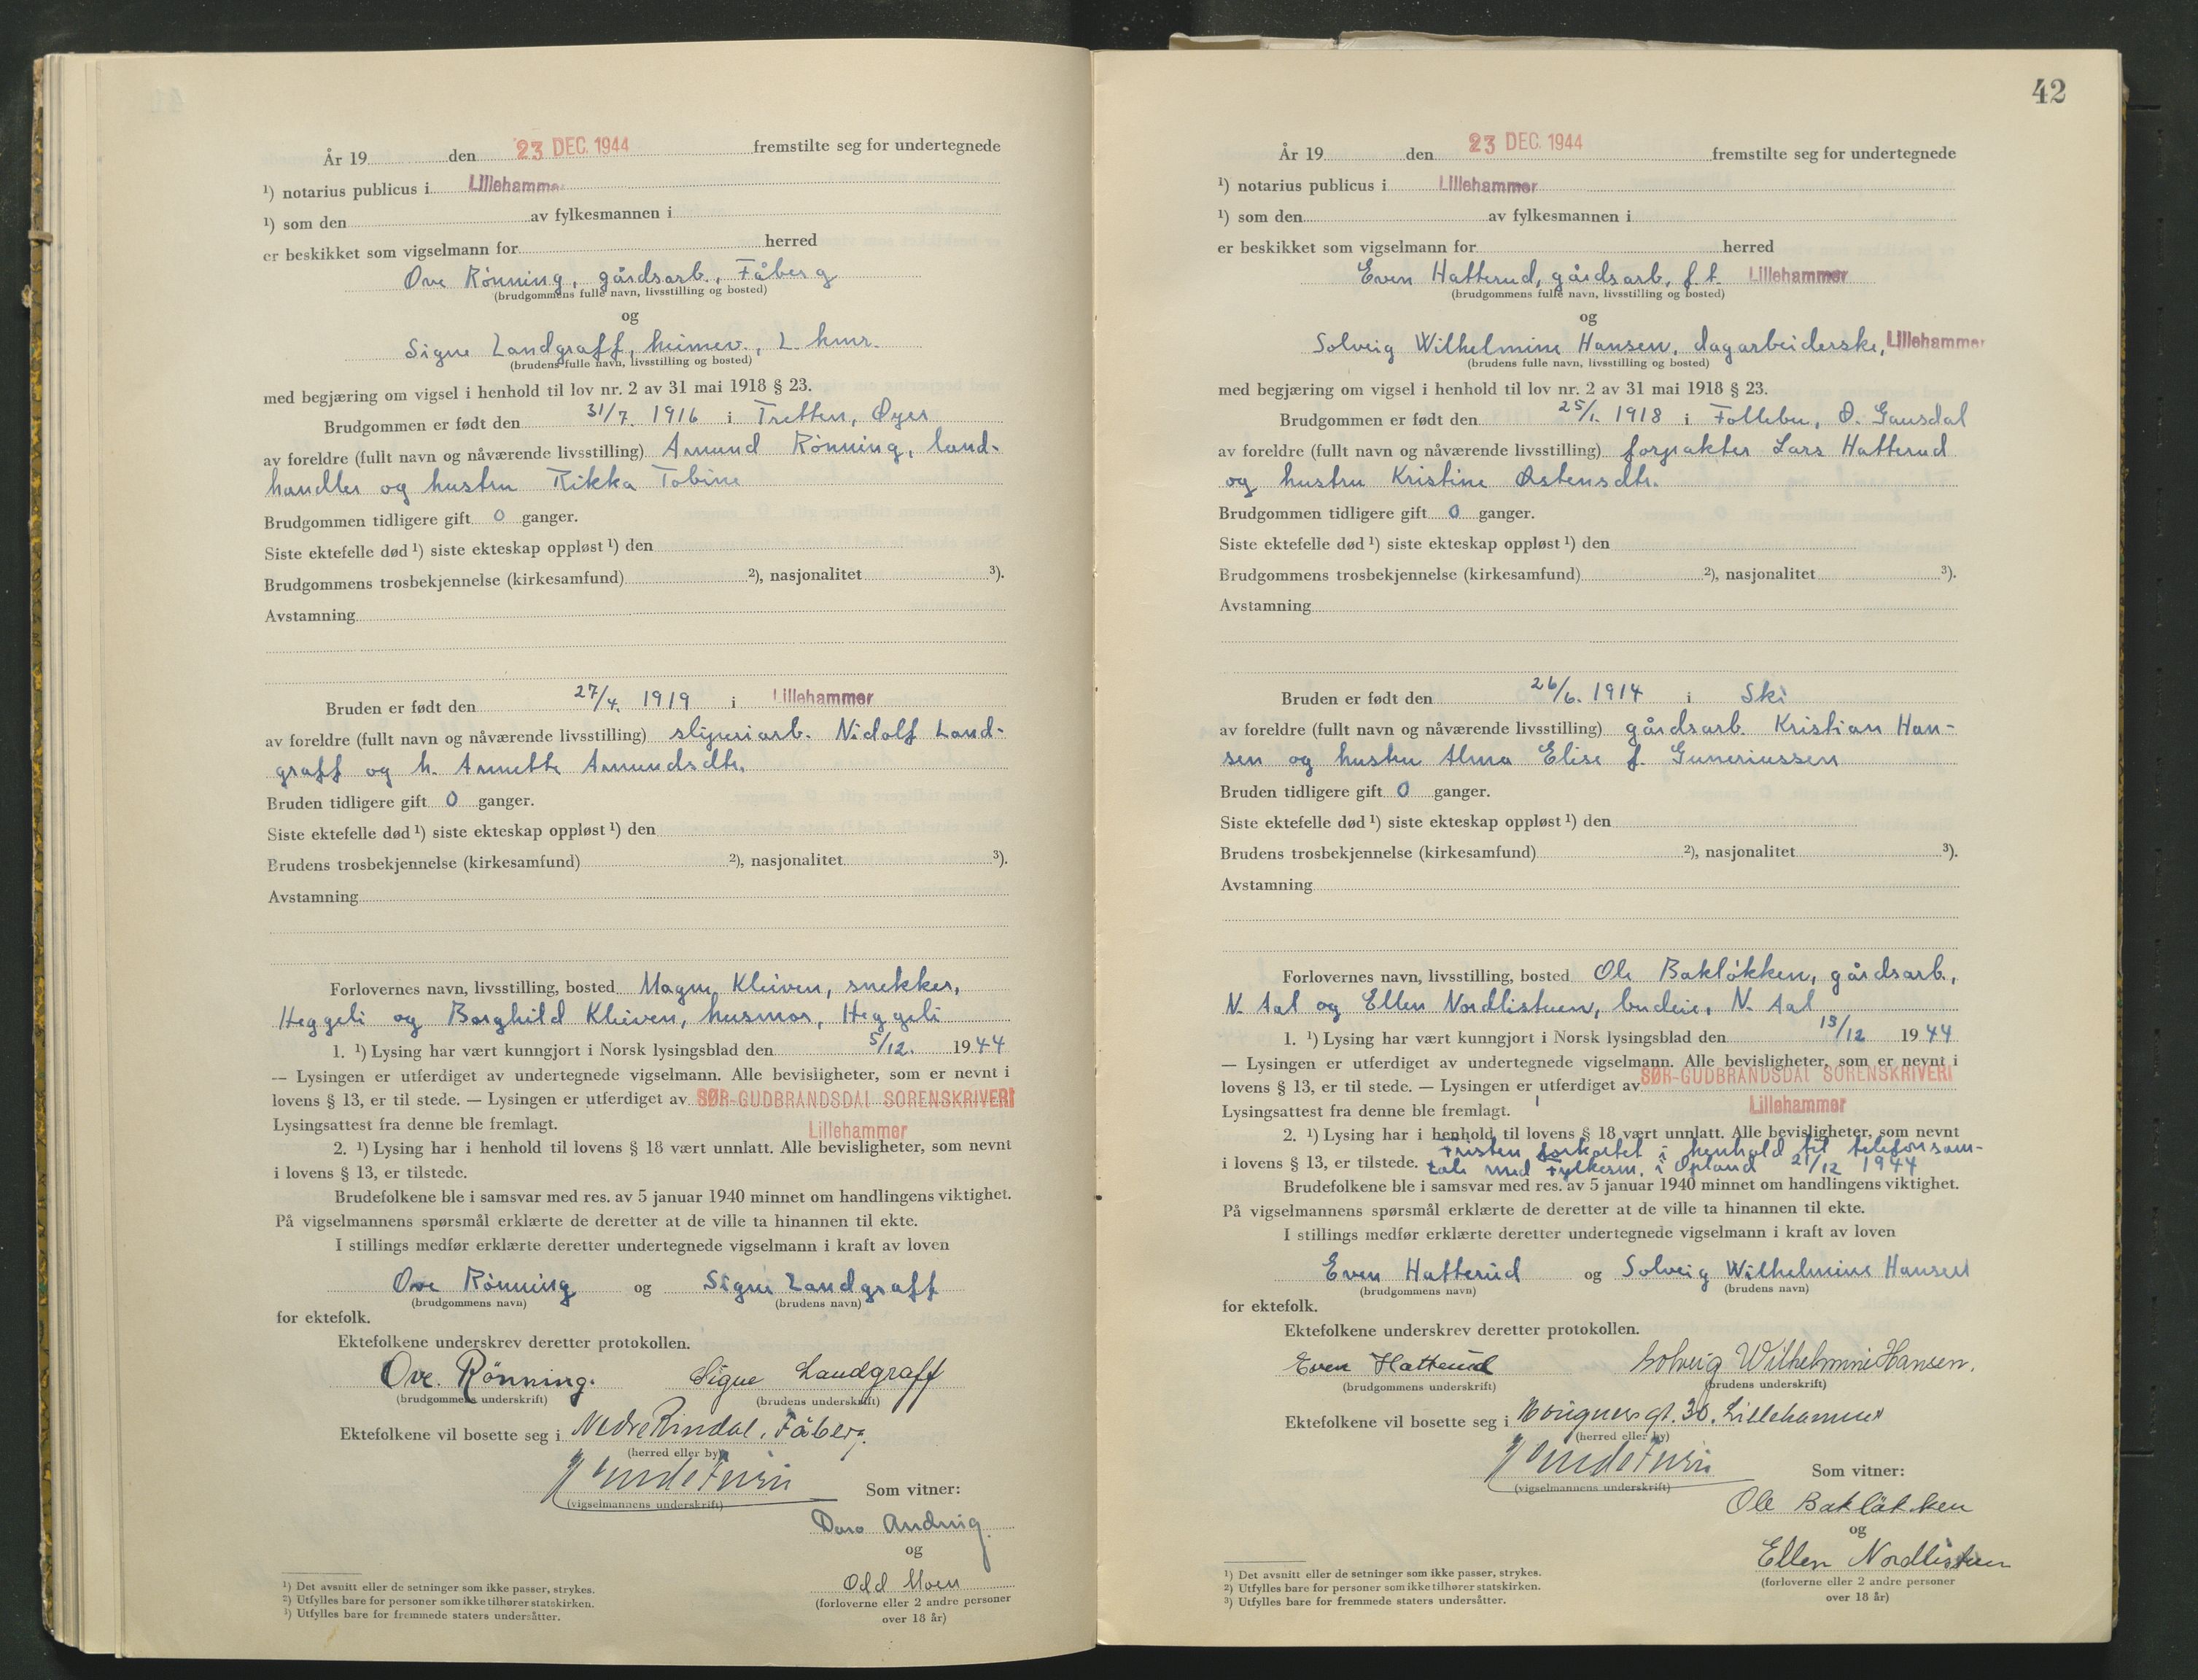 År 19 den 23 DEC. 1944 fremstilte seg for undertegnede
¹) notarius publicus i Lillehammer
¹) som den av fylkesmannen i
er beskikket som vigselmann for herred
Ove Rönning, gårdsarb., Fåberg
(brudgommens fulle navn, livsstilling og bosted)
og
Signe Landgraff, heimev., L.hmr.
(brudens fulle navn, livsstilling og bosted)
med begjæring om vigsel i henhold til lov nr. 2 av 31 mai 1918 § 23.
Brudgommen er født den 31/7. 1916 i Tretten, Øyer
av foreldre (fullt navn og nåværende livsstilling) Amund Rönning, land-
handler og hustru Rikka Tobine
Brudgommen tidligere gift 0 ganger.
Siste ektefelle død ¹) siste ekteskap oppløst ¹) den
Brudgommens trosbekjennelse (kirkesamfund) ²), nasjonalitet ³).
Avstamning
Bruden er født den 27/4. 1919 i Lillehammer
av foreldre (fullt navn og nåværende livsstilling) sliperiarb. Nidolf Land-
graff og h. Annette Amundsdtr.
Bruden tidligere gift 0 ganger.
Siste ektefelle død ¹) siste ekteskap oppløst ¹) den
Brudens trosbekjennelse (kirkesamfund) ²), nasjonalitet ³).
Avstamning
Forlovernes navn, livsstilling, bosted Magne Kleiven, snekker,
Heggeli og Borghild Kleiven, husmor, Heggeli
1. ¹) Lysing har vært kunngjort i Norsk lysingsblad den 5/12. 1944
— Lysingen er utferdiget av undertegnede vigselmann. Alle bevisligheter, som er nevnt i
lovens § 13, er til stede. — Lysingen er utferdiget av SØR-GUDBRANDSDAL SORENSKRIVERI
Lysingsattest fra denne ble fremlagt.
Lillehammer
2. ¹) Lysing har i henhold til lovens § 18 vært unnlatt. Alle bevisligheter, som nevnt
i lovens § 13, er tilstede.
Brudefolkene ble i samsvar med res. av 5 januar 1940 minnet om handlingens viktighet.
På vigselmannens spørsmål erklærte de deretter at de ville ta hinannen til ekte.
I stillings medfør erklærte deretter undertegnede vigselmann i kraft av loven
Ove Rönning og Signe Landgraff
(brudgommens navn) (brudens navn)
for ektefolk.
Ektefolkene underskrev deretter protokollen.
Ove Rönning. Signe Landgraff
(brudgommens underskrift) (brudens underskrift)
Ektefolkene vil bosette seg i Nedre Rindal, Fåberg.
(herred eller by)
(vigselmannens underskrift)
Som vitner:
og
Odd Moen
(forloverne eller 2 andre personer
over 18 år)
¹) Det avsnitt eller de setninger som ikke passer, strykes.
²) Utfylles bare for personer som ikke tilhører statskirken.
³) Utfylles bare for fremmede staters undersåtter.
42
År 19 den 23 DEC. 1944 fremstilte seg for undertegnede
¹) notarius publicus i Lillehammer
¹) som den av fylkesmannen i
er beskikket som vigselmann for herred
Even Hatterud, gårdsarb, f.t. Lillehammer
(brudgommens fulle navn, livsstilling og bosted)
og
Solveig Wilhelmine Hansen, dagarbeiderske, Lillehammer
(brudens fulle navn, livsstilling og bosted)
med begjæring om vigsel i henhold til lov nr. 2 av 31 mai 1918 § 23.
Brudgommen er født den 25/1. 1918 i Follebu, Ø. Gausdal
av foreldre (fullt navn og nåværende livsstilling) forpakter Lars Hatterud
og hustru Kristine Østensdtr.
Brudgommen tidligere gift 0 ganger.
Siste ektefelle død ¹) siste ekteskap oppløst ¹) den
Brudgommens trosbekjennelse (kirkesamfund) ²), nasjonalitet ³).
Avstamning
Bruden er født den 26/6. 1914 i Ski
av foreldre (fullt navn og nåværende livsstilling) gårdsarb. Kristian Han-
sen og hustru Alma Elise f. Guneriussen
Bruden tidligere gift 0 ganger.
Siste ektefelle død ¹) siste ekteskap oppløst ¹) den
Brudens trosbekjennelse (kirkesamfund) ²), nasjonalitet ³).
Avstamning
Forlovernes navn, livsstilling, bosted Ole Baklökken, gårdsarb.,
N. Aal og Ellen Nordlistuen, budeie, N. Aal
1. ¹) Lysing har vært kunngjort i Norsk lysingsblad den 13/12 1944
— Lysingen er utferdiget av undertegnede vigselmann. Alle bevisligheter, som er nevnt i
lovens § 13, er til stede. — Lysingen er utferdiget av SØR-GUDBRANDSDAL SORENSKRIVERI
Lysingsattest fra denne ble fremlagt. Lillehammer
2. ¹) Lysing har i henhold til lovens § 18 vært unnlatt. Alle bevisligheter, som nevnt
i lovens § 13, er tilstede. Fristen forkortet i henhold til telefonsam-
tale med Fylkesm. i Opland 21/12 1944
Brudefolkene ble i samsvar med res. av 5 januar 1940 minnet om handlingens viktighet.
På vigselmannens spørsmål erklærte de deretter at de ville ta hinannen til ekte.
I stillings medfør erklærte deretter undertegnede vigselmann i kraft av loven
Even Hatterud og Solveig Wilhelmine Hansen
(brudgommens navn) (brudens navn)
for ektefolk.
Ektefolkene underskrev deretter protokollen.
Even Hatterud Solveig Wilhelmine Hansen.
(brudgommens underskrift) (brudens underskrift)
Ektefolkene vil bosette seg i gt. 30. Lillehammer
(herred eller by)
(vigselmannens underskrift)
Som vitner:
Ole Baklökken
og
Ellen Nordlistuen
(forloverne eller 2 andre personer
over 18 år)
¹) Det avsnitt eller de setninger som ikke passer, strykes.
²) Utfylles bare for personer som ikke tilhører statskirken.
³) Utfylles bare for fremmede staters undersåtter.